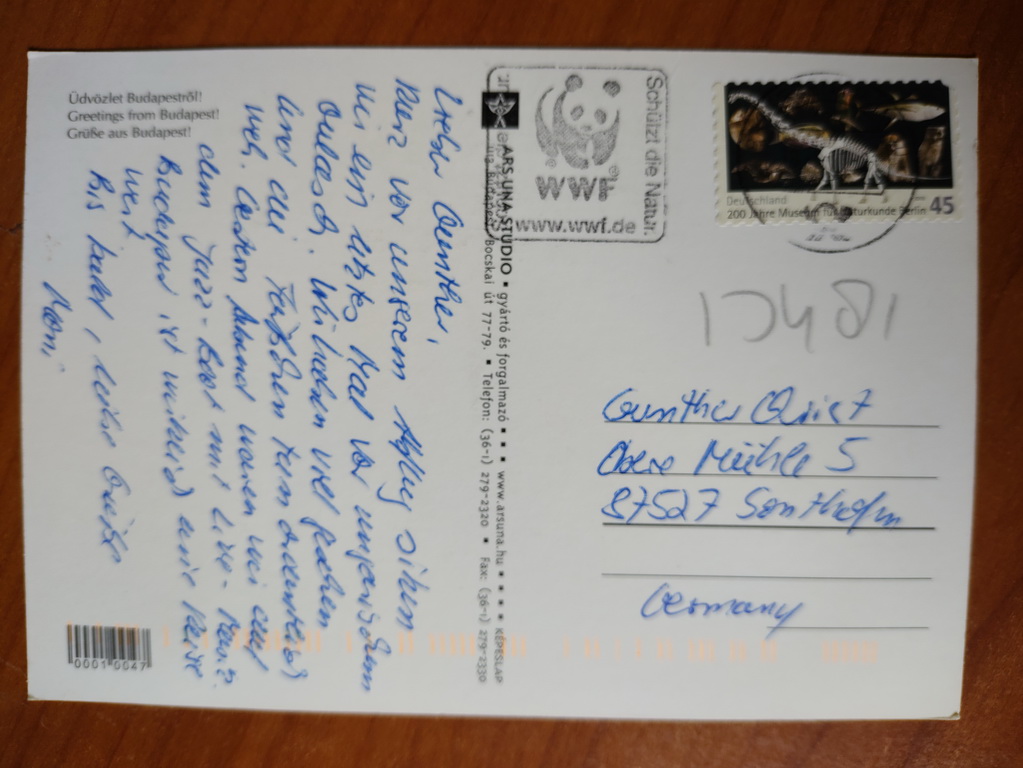 Üdvözlet Budapestről!
Greetings from Budapest!
Grüße aus Budapest!
Lieber Günther,
kurz vor unserem Abflug sitzen
wir ein letztes Mal vor ungarischem
Gulasch. Wir haben viel gesehen
und die Füße tun ordentlich
weh. Gestern Abend waren wir auf
dem Jazz-Boot mit Live-Band.
Budapest ist wirklich eine Reise
wert.
Bis bald, liebe Grüße
Moni
ARS UNA STUDIO • gyártó és forgalmazó • • • www.arsuna.hu • • • • KÉPESLAP
Budapest, Bocskai út 77-79. • Telefon: (36-1) 279-2320 • Fax: (36-1) 279-2330
0001 0047
Schützt die Natur.
WWF
www.wwf.de
Deutschland
200 Jahre Museum für Naturkunde Berlin 45
Günther Quist
Obere Mühle 5
87527 Sonthofen
Germany